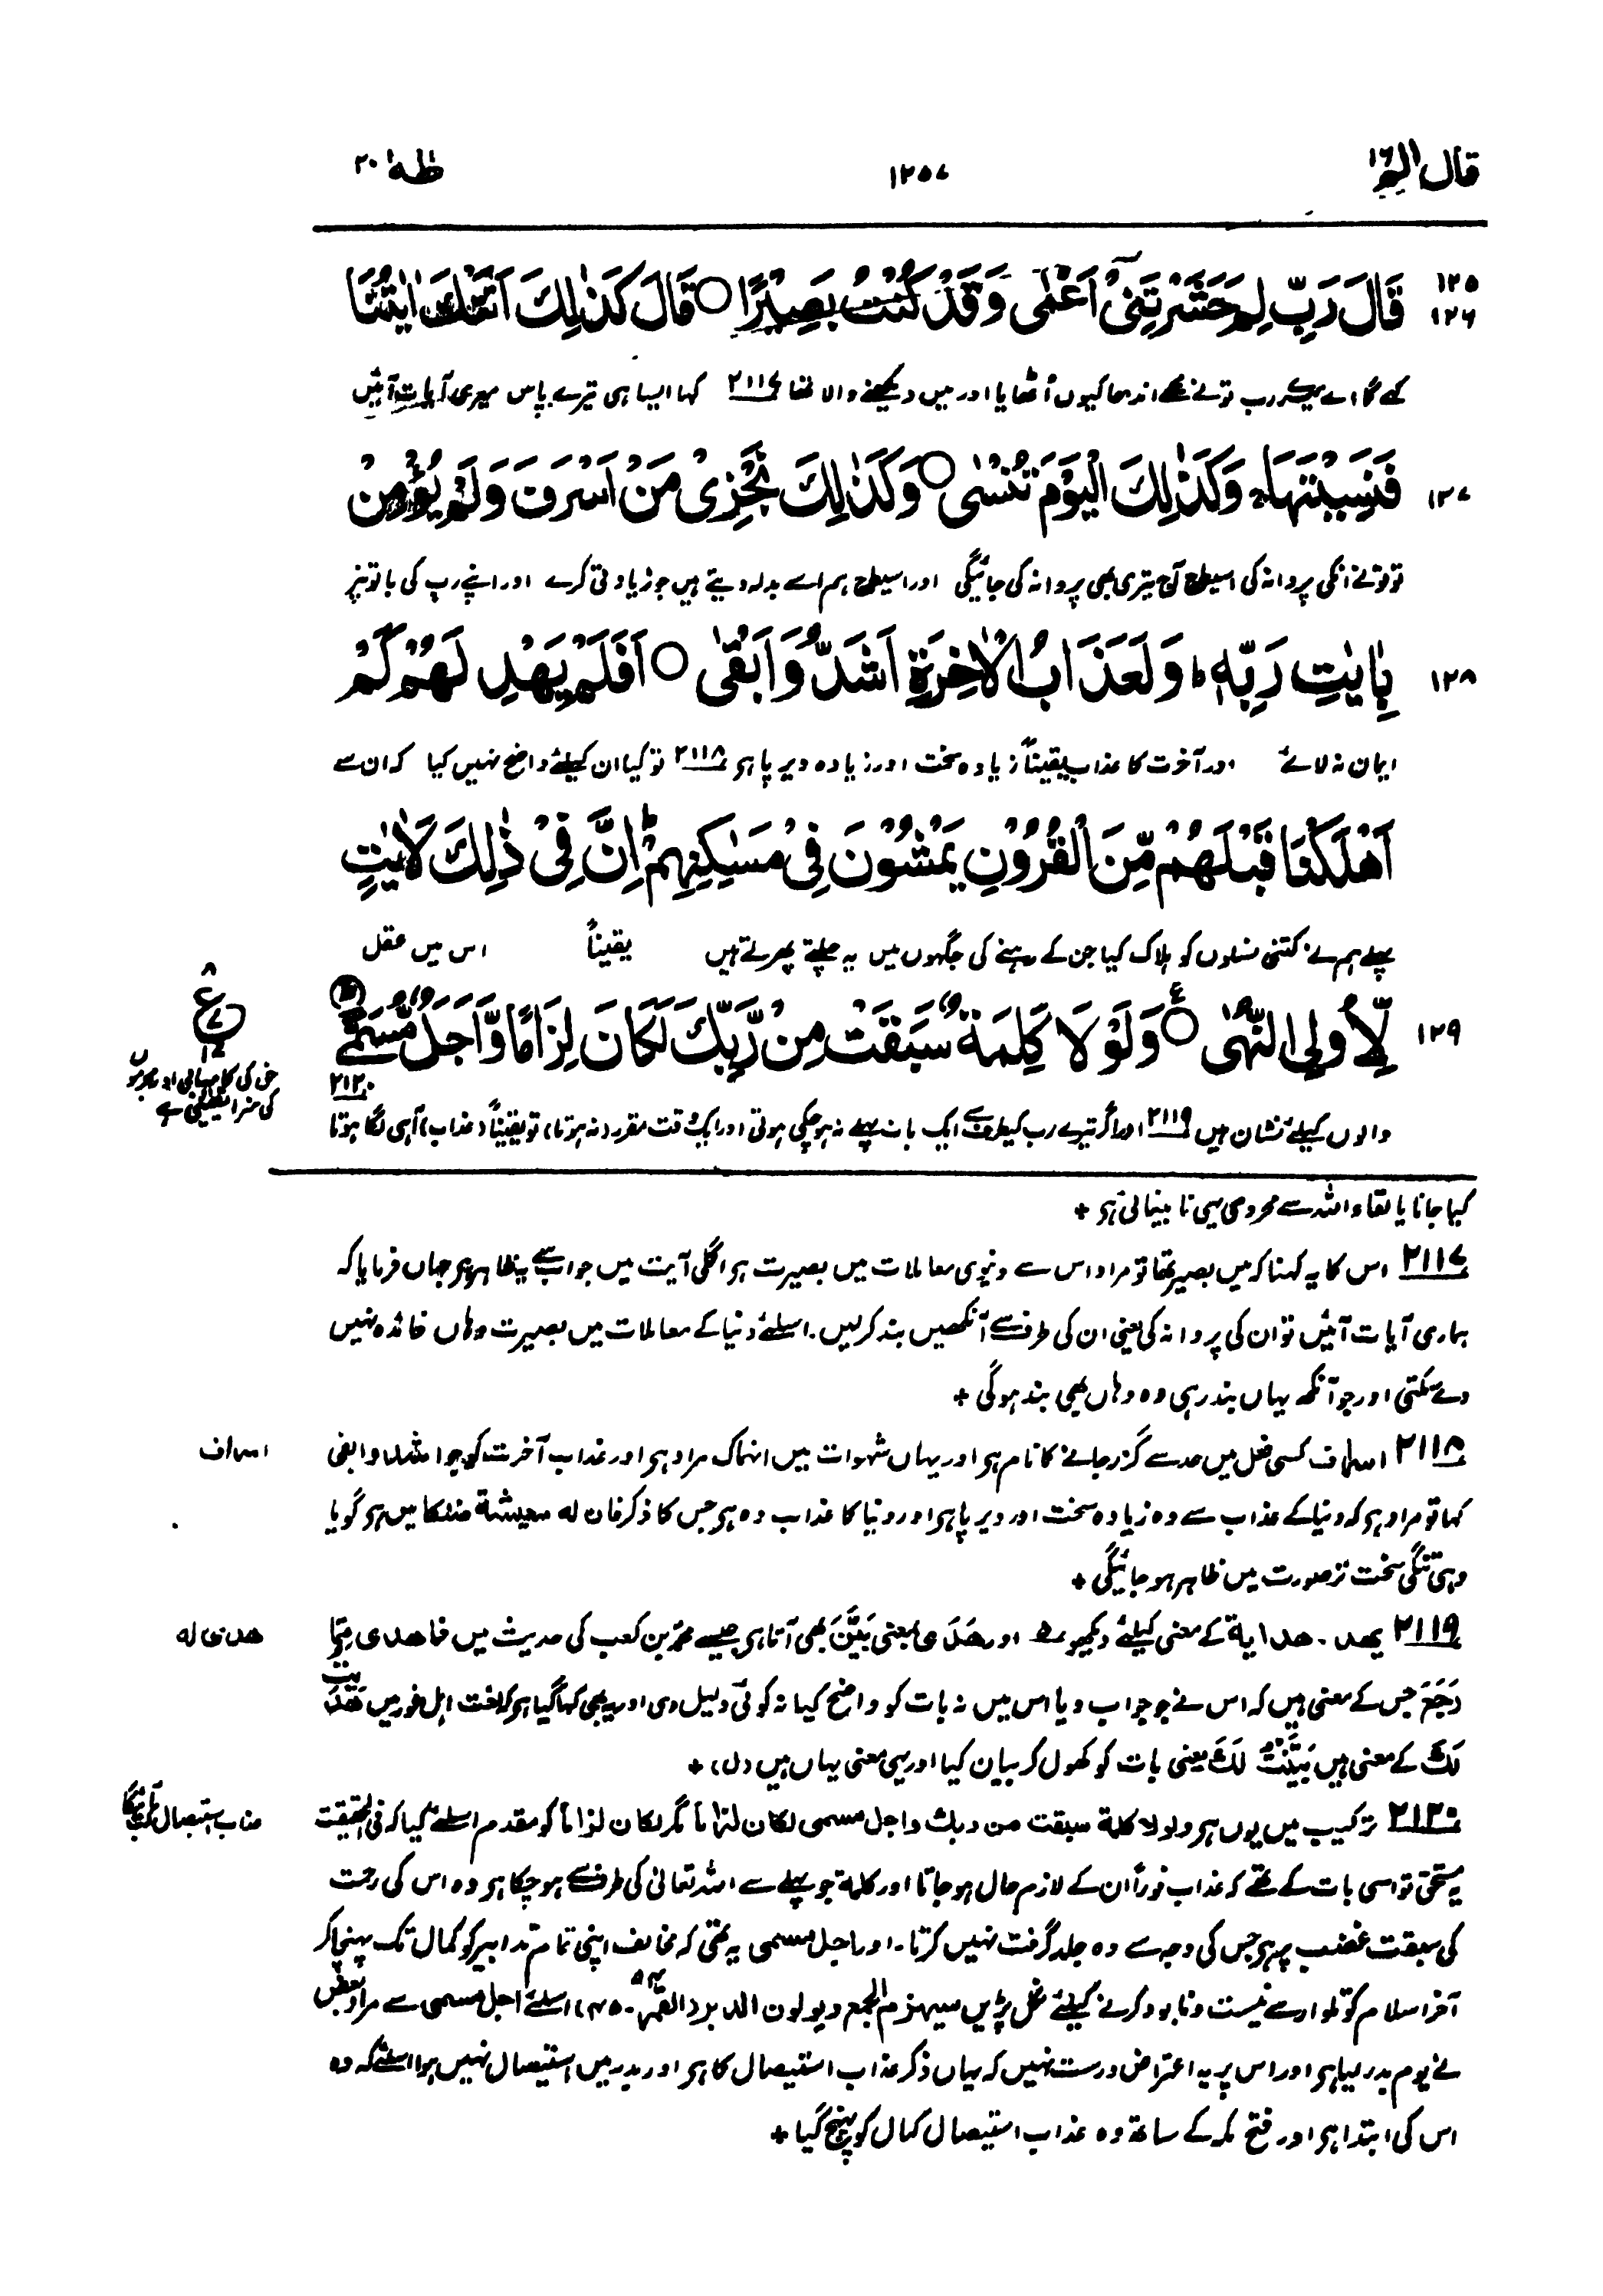 قال الم ١٦
١٢٥٧
طٰهٰ ٢٠
١٢٥
١٢٦
قَالَ رَبِّ لِمَ حَشَرْتَنِیْۤ اَعْمٰی وَقَدْ كُنْتُ بَصِیْرًا ○ قَالَ كَذٰلِكَ اَتَتْكَ اٰیٰتُنَا
کہے گا اے میرے رب تو نے مجھے اندھا کیوں اُٹھایا اور میں دیکھنے والا تھا ٢١١٧ کہا ایسا ہی تیرے پاس میری آیات آئیں
١٢٧
فَنَسِیْتَهَا ۚ وَكَذٰلِكَ الْیَوْمَ تُنْسٰی ○ وَكَذٰلِكَ نَجْزِیْ مَنْ اَسْرَفَ وَلَمْ یُؤْمِنْ
تو تو نے انکی پروا نہ کی اسیطرح آج تیری بھی پروا نہ کی جائیگی اور اسیطرح ہم اسے بدلہ دیتے ہیں جو زیادتی کرے اور اپنے رب کی باتوں پر
١٢٨
بِاٰیٰتِ رَبِّهٖ ؕ وَلَعَذَابُ الْاٰخِرَةِ اَشَدُّ وَاَبْقٰی ○ اَفَلَمْ یَهْدِ لَهُمْ كَمْ
ایمان نہ لائے اور آخرت کا عذاب یقیناً زیادہ سخت اور زیادہ دیرپا ہر ٢١١٨ تو کیا ان کیلئے واضح نہیں کیا کہ ان سے
اَهْلَكْنَا قَبْلَهُمْ مِّنَ الْقُرُوْنِ یَمْشُوْنَ فِیْ مَسٰكِنِهِمْ ؕ اِنَّ فِیْ ذٰلِكَ لَاٰیٰتٍ
پہلے ہم نے کتنی نسلوں کو ہلاک کیا جن کے رہنے کی جگہوں میں یہ چلتے پھرتے ہیں یقیناً اس میں عقل
١٢٩
لِّاُولِی النُّهٰی ○ وَلَوْ لَا كَلِمَةٌ سَبَقَتْ مِنْ رَّبِّكَ لَكَانَ لِزَامًا وَّاَجَلٌ مُّسَمًّی
٢١٢٠
والوں کیلئے نشان ہیں ٢١١٩ اور اگر تیرے رب کیطرف سے ایک بات پہلے نہ ہو چکی ہوتی اور ایک وقت مقرر (نہ ہوتا) تو یقیناً (عذاب) آہی لگا ہوتا
٨
ع
٧
حق کی کامیابی اور مجرموں
کی سزا یقینی ہے
کیا جانا یا لقاء اللہ سے محرومی یہی نابینائی ہر +
٢١١٧ اس کا یہ کہنا کہ میں بصیر تھا تو مراد اس سے دنیوی معاملات میں بصیرت ہر اگلی آیت میں جواب سے یہ ظاہر ہر جہاں فرمایا کہ
ہماری آیات آئیں تو ان کی پروا نہ کی یعنی ان کی طرف سے آنکھیں بند کر لیں۔ اسلئے دنیا کے معاملات میں بصیرت وہاں فائدہ نہیں
دے سکتی اور جو آنکھ یہاں بند رہی وہ وہاں بھی بند ہوگی +
٢١١٨ اسراف کسی فعل میں حد سے گزر جانے کا نام ہر اور یہاں شہوات میں انہماک مراد ہر اور عذاب آخرت کو جو اشد و ابقی
اسراف
کہا تو مراد ہر کہ دنیا کے عذاب سے وہ زیادہ سخت اور دیرپا ہر اور دنیا کا عذاب وہ ہر جس کا ذکر فان له معيشة ضنكا میں ہر گویا
وہی تنگی سخت تر صورت میں ظاہر ہو جائیگی +
٢١١٩ یهد۔ هداية کے معنی کیلئے دیکھو اور هَدَی بمعنی بَیَّنَ بھی آتا ہر جیسے محمد بن کعب کی حدیث میں فما هدی مِمّا
هدی له
رَجَعَ جس کے معنی ہیں کہ اس نے جو جواب دیا اس میں نہ بات کو واضح کیا نہ کوئی دلیل دی اور یہ بھی کہا گیا ہر کہ لغت اہل غور میں هَدَيتُ
لَكَ کے معنی ہیں بَيَّنْتُ لَكَ یعنی بات کو کھول کر بیان کیا اور یہی معنی یہاں ہیں (ل) +
٢١٢٠ ترکیب میں یوں ہر ولولا كلمة سبقت من ربك واجل مسمى لكان لزاما مگر لكان لزاما کو مقدم اسلئے کیا کہ فی الحقیقت
عذاب استیصال کب آئیگا
یہ مستحق تو اسی بات کے تھے کہ عذاب فوراً ان کے لازم حال ہو جاتا اور کلمۃ جو پہلے سے اللہ تعالیٰ کی طرف سے ہو چکا ہر وہ اس کی رحمت
کی سبقت غضب پر ہر جس کی وجہ سے وہ جلد گرفت نہیں کرتا۔ اور اجل مسمی یہ تھی کہ مخالف اپنی تمام تدابیر کو کمال تک پہنچا کر
آخر اسلام کو تلوار سے نیست و نابود کرنے کیلئے نکل پڑیں سيهزم الجمع ويولون الدبر (القمر ٥٤-٤٥) اسلئے اجل مسمی سے مراد بعض
نے یوم بدر لیا ہر اور اس پر یہ اعتراض درست نہیں کہ یہاں ذکر عذاب استیصال کا ہر اور بدر میں استیصال نہیں ہوا اسلئے کہ وہ
اس کی ابتدا ہر اور فتح مکہ کے ساتھ وہ عذاب استیصال کمال کو پہنچ گیا +